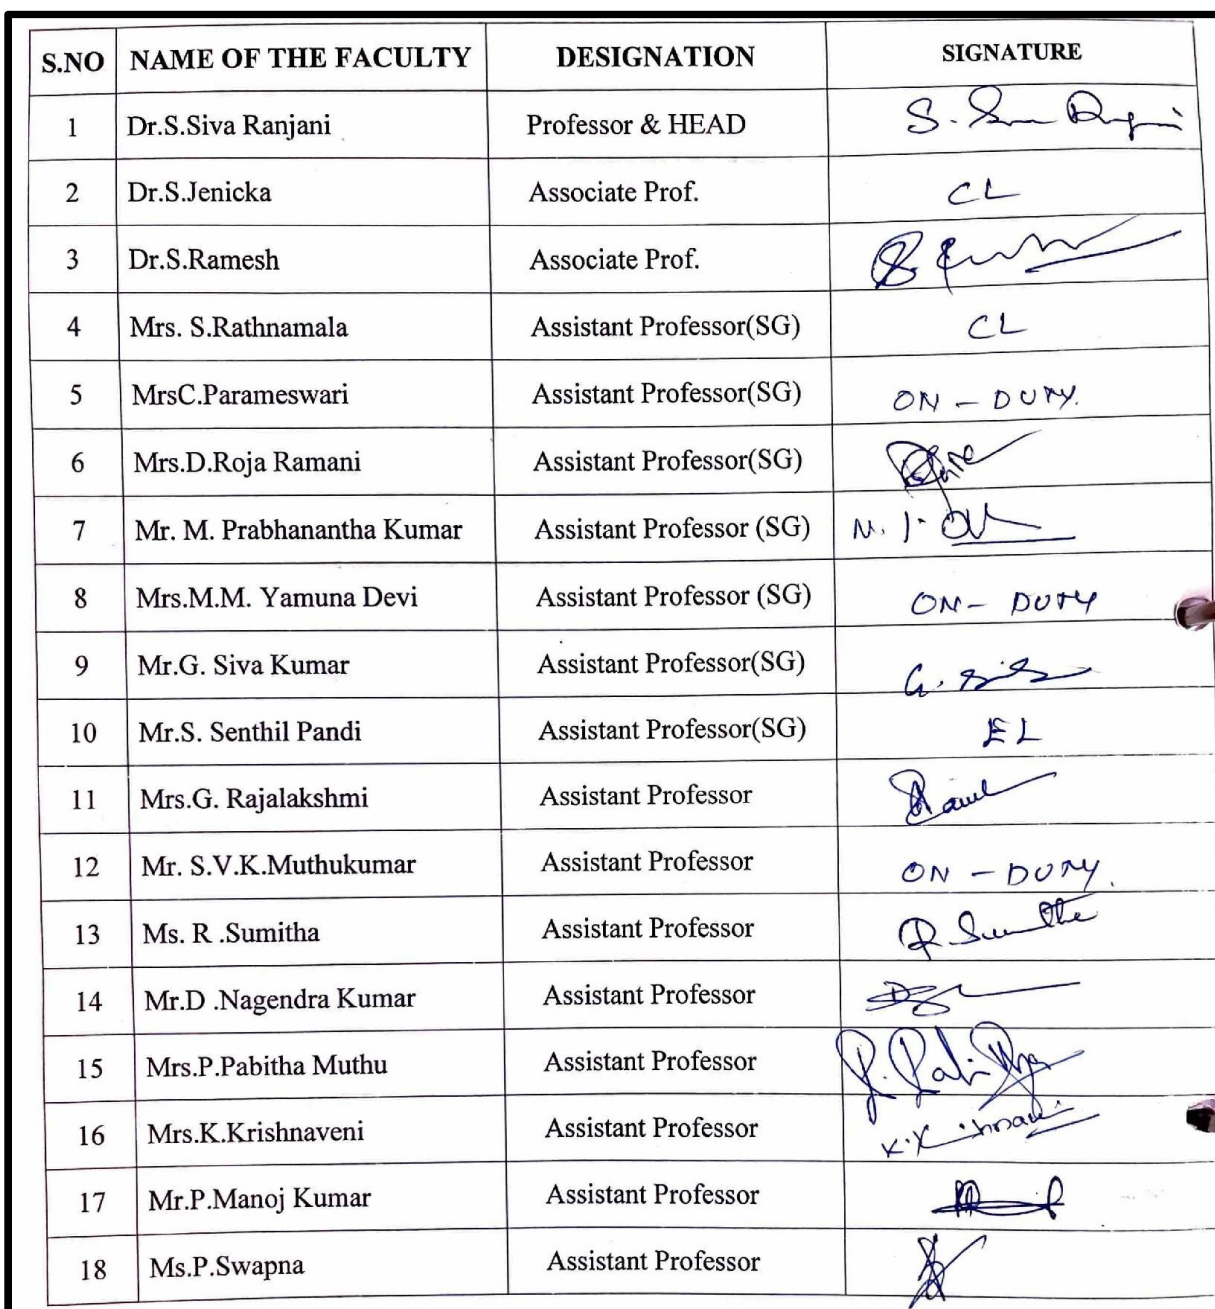 S.NO NAME OF THE FACULTY DESIGNATION SIGNATURE
1 Dr.S.Siva Ranjani Professor & HEAD
2 Dr.S.Jenicka Associate Prof. CL
3 Dr.S.Ramesh Associate Prof.
4 Mrs. S.Rathnamala Assistant Professor(SG) CL
5 MrsC.Parameswari Assistant Professor(SG) ON - DUTY.
6 Mrs.D.Roja Ramani Assistant Professor(SG)
7 Mr. M. Prabhanantha Kumar Assistant Professor (SG)
8 Mrs.M.M. Yamuna Devi Assistant Professor (SG) ON - DUTY
9 Mr.G. Siva Kumar Assistant Professor(SG)
10 Mr.S. Senthil Pandi Assistant Professor(SG) EL
11 Mrs.G. Rajalakshmi Assistant Professor
12 Mr. S.V.K.Muthukumar Assistant Professor ON - DUTY.
13 Ms. R .Sumitha Assistant Professor R Sumitha
14 Mr.D .Nagendra Kumar Assistant Professor
15 Mrs.P.Pabitha Muthu Assistant Professor
16 Mrs.K.Krishnaveni Assistant Professor
17 Mr.P.Manoj Kumar Assistant Professor
18 Ms.P.Swapna Assistant Professor